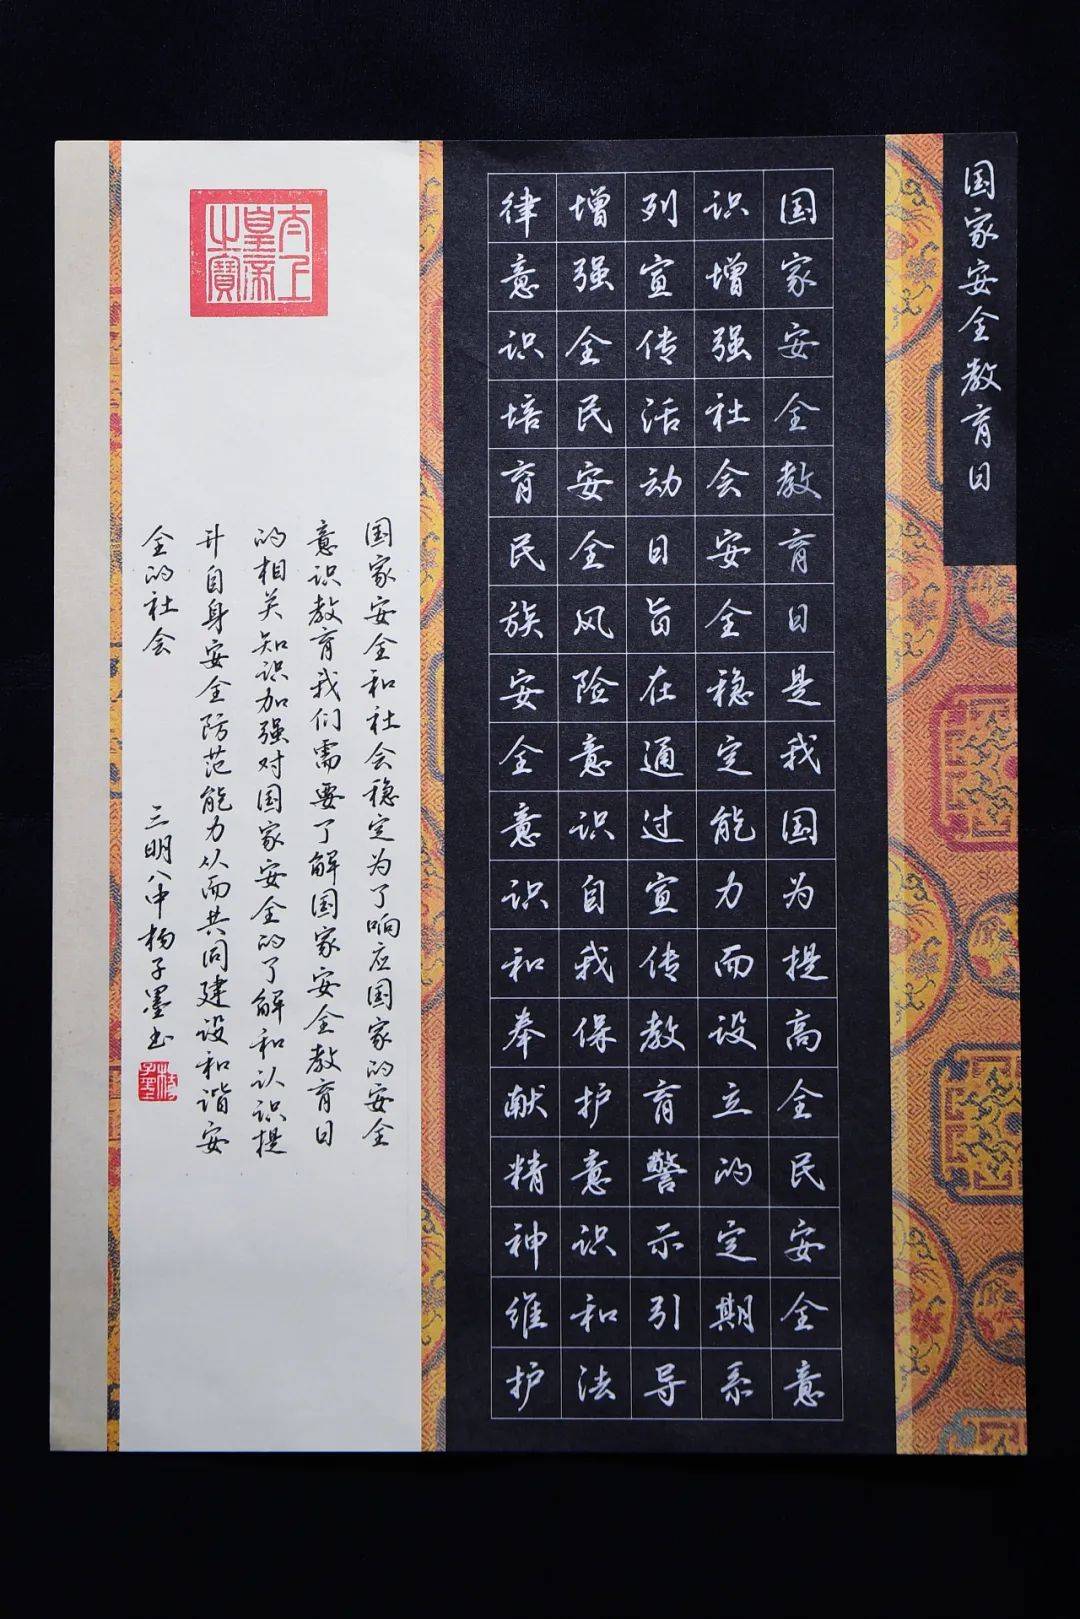 国家安全教育日
国家安全教育日是我国为提高全民安全意
识增强社会安全稳定能力而设立的定期系
列宣传活动日旨在通过宣传教育警示引导
增强全民安全风险意识自我保护意识和法
律意识培育民族安全意识和奉献精神维护
国家安全和社会稳定为了响应国家的安全
意识教育我们需要了解国家安全教育日
的相关知识加强对国家安全的了解和认识提
升自身安全防范能力从而共同建设和谐安
全的社会
三明八中杨子墨书
太上
皇帝
之寶